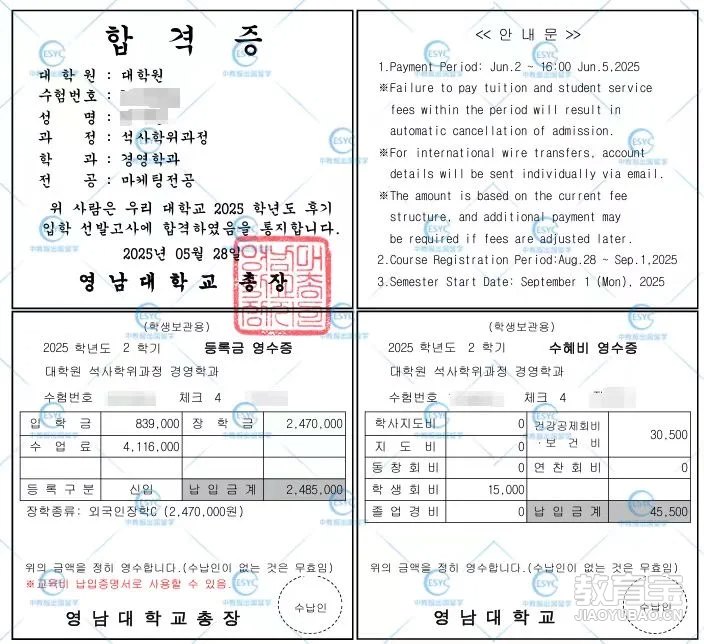 합 격 증
대 학 원 : 대학원
수험번호 :
성 명 :
과 정 : 석사학위과정
학 과 : 경영학과
전 공 : 마케팅전공
위 사람은 우리 대학교 2025 학년도 후기
입학 선발고사에 합격하였음을 통지합니다.
2025년 05월 28일
영 남 대 학 교 총 장
≪ 안 내 문 ≫
1.Payment Period: Jun.2 ~ 16:00 Jun.5,2025
※Failure to pay tuition and student service
fees within the period will result in
automatic cancellation of admission.
※For international wire transfers, account
details will be sent individually via email.
※The amount is based on the current fee
structure, and additional payment may
be required if fees are adjusted later.
2.Course Registration Period:Aug.28 ~ Sep.1,2025
3.Semester Start Date: September 1 (Mon), 2025
(학생보관용)
2025 학년도 2 학기 등록금 영수증
대학원 석사학위과정 경영학과
수험번호 체크 4
입 학 금 839,000 장 학 금 2,470,000
수 업 료 4,116,000
등 록 구 분 신입 납 입 금 계 2,485,000
장학종류: 외국인장학C (2,470,000원)
위의 금액을 정히 영수합니다.(수납인이 없는 것은 무효임)
※교육비 납입증명서로 사용할 수 있음.
영 남 대 학 교 총 장
수납인
(학생보관용)
2025 학년도 2 학기 수혜비 영수증
대학원 석사학위과정 경영학과
수험번호 체크 4
학사지도비 0 건강공제회비 30,500
지 도 비 0 ·보 건 비
동 창 회 비 0 연 찬 회 비 0
학 생 회 비 15,000
졸 업 경 비 0 납 입 금 계 45,500
위의 금액을 정히 영수합니다.(수납인이 없는 것은 무효임)
영 남 대 학 교
수납인
ESYC
中教振出国留学
教育宝
JIAOYUBAO.CN